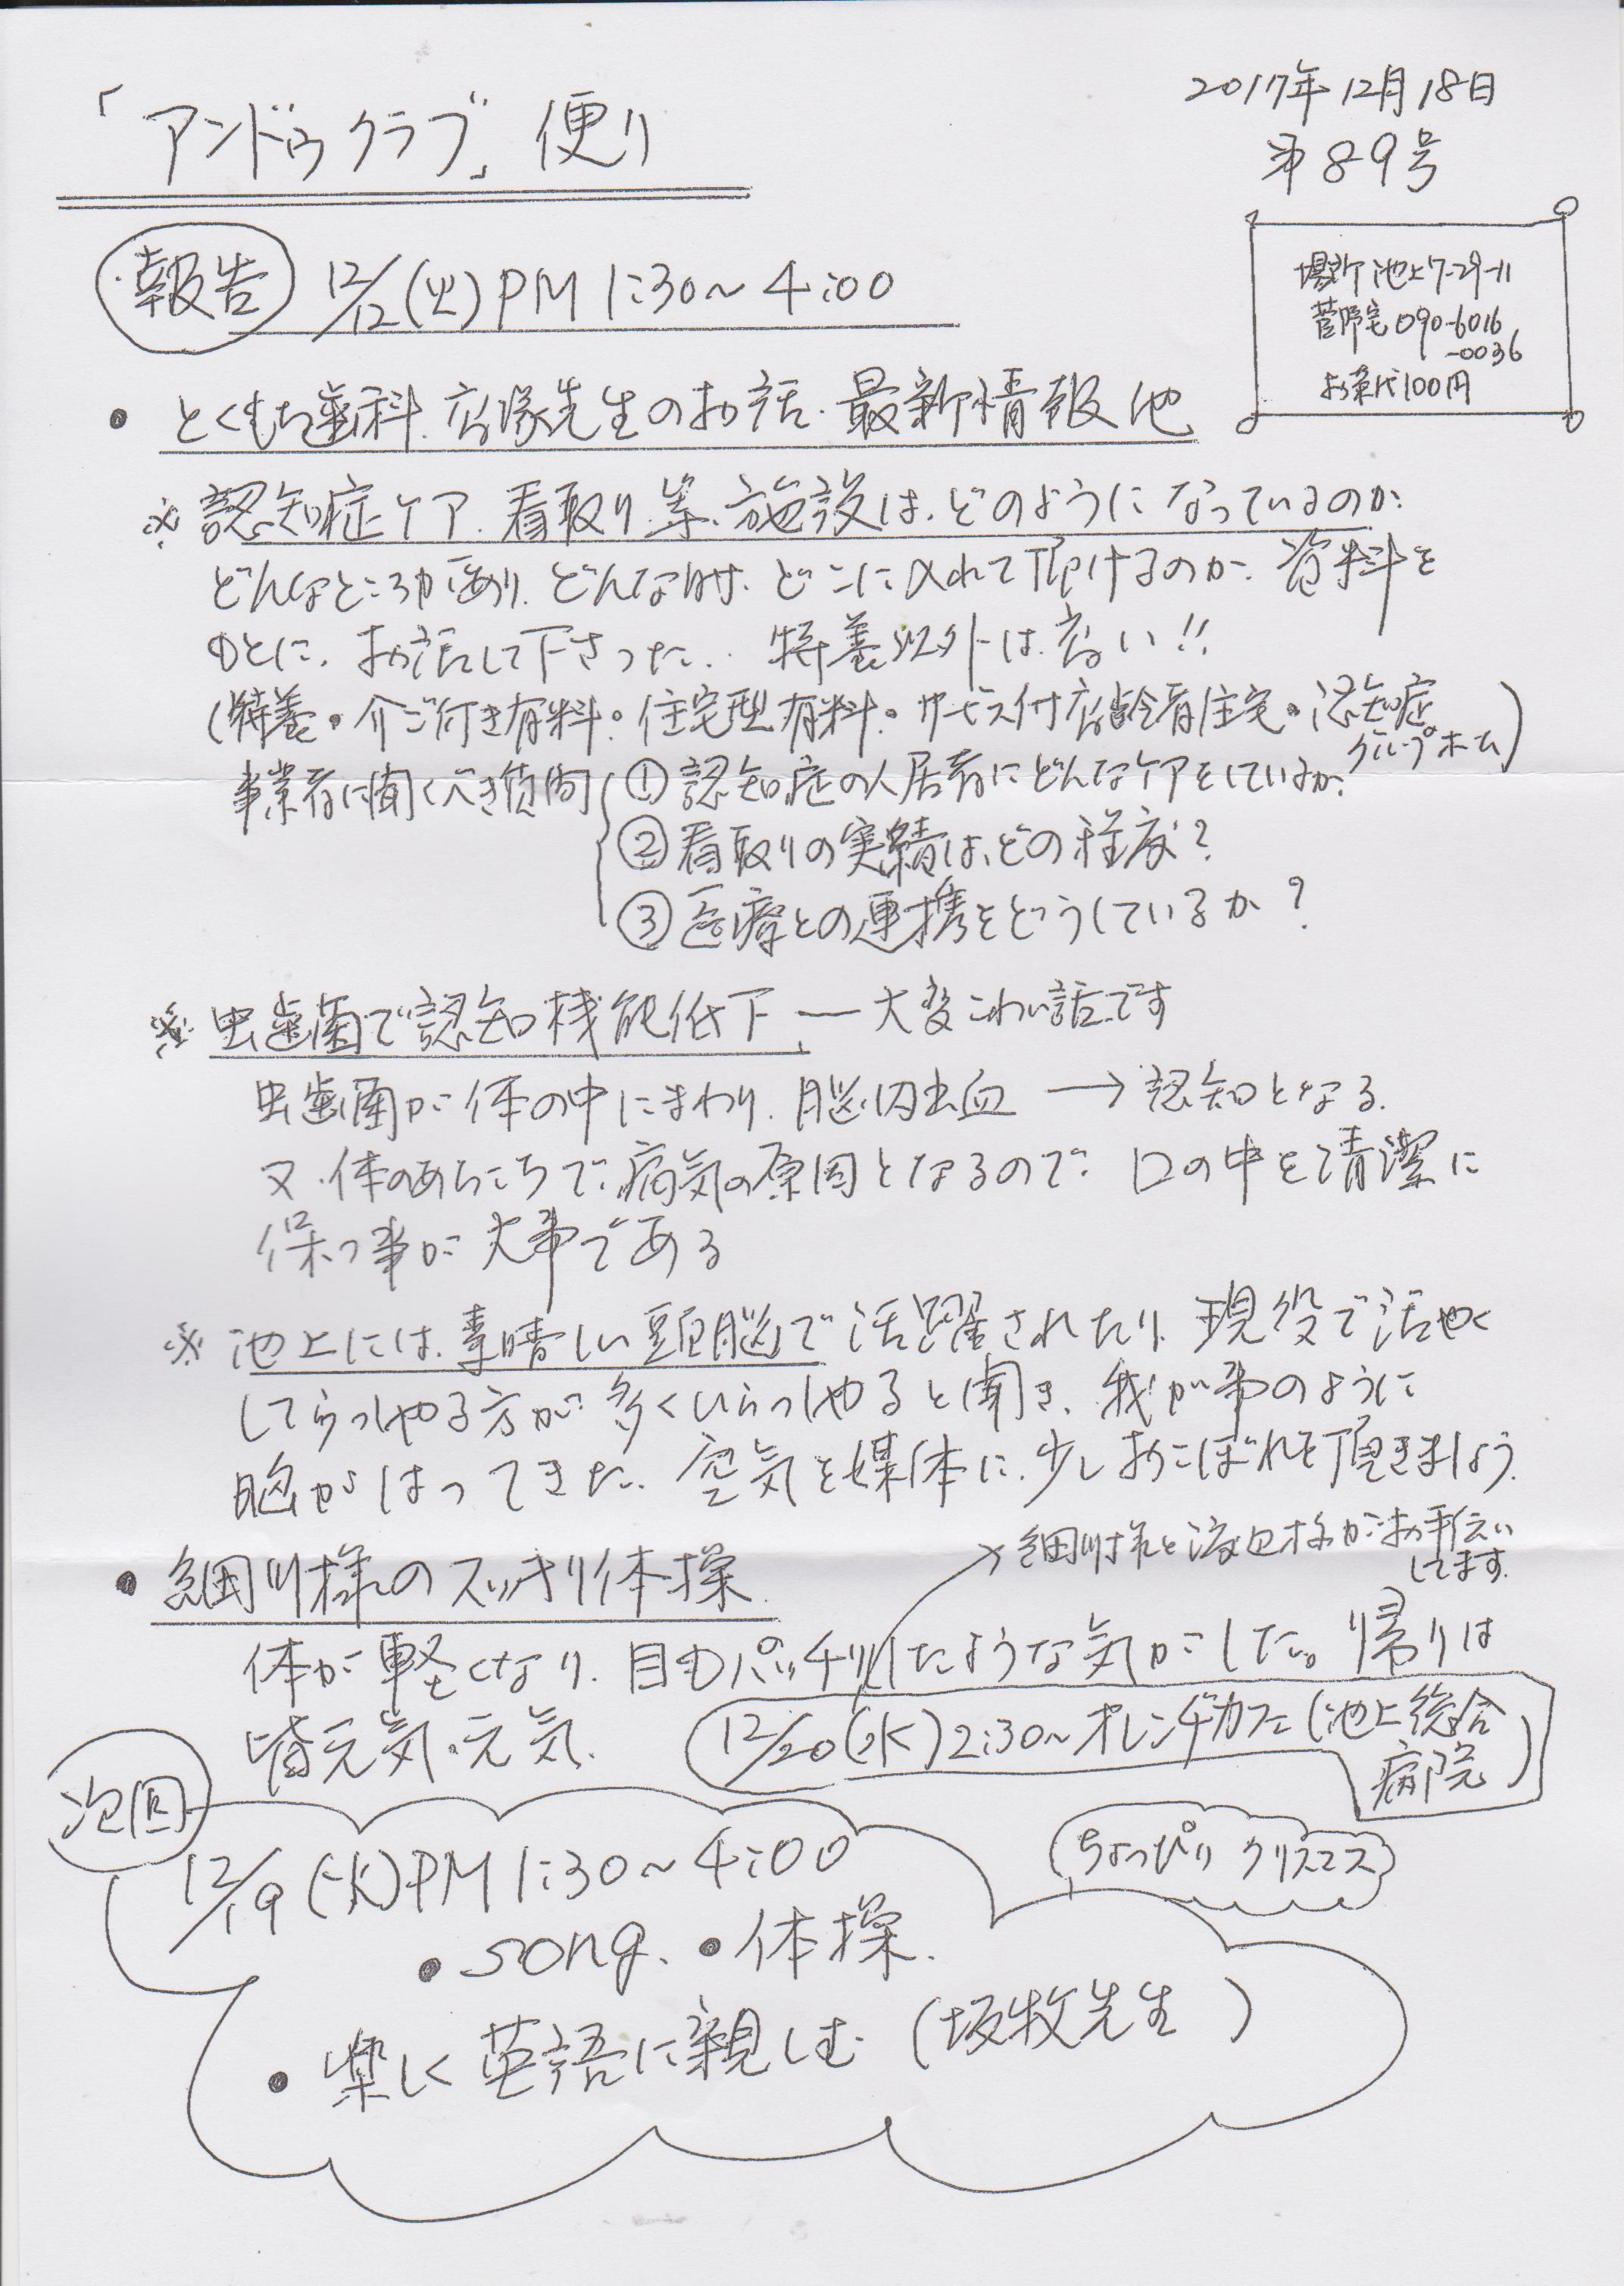 2017年12月18日
「アンドゥクラブ」便り
第89号
報告 12/12(火)PM1:30〜4:00
場所 池上7-29-11
菅野宅 090-6016
-0036
お茶代100円
・とくもち歯科 高塚先生のお話・最新情報他
※認知症ケア、看取り等、施設は、どのようになっているのか、
どんなところがあり、どんな時、どこに入れて頂けるのか、資料を
もとに、お話して下さった。 特養以外は高い!!
(特養・介ご付き有料・住宅型有料・サービス付高齢者住宅・認知症
グループホーム)
事業者に聞くべき質問 ①認知症の入居者にどんなケアをしているか、
②看取りの実績は、どの程度?
③医療との連携をどうしているか?
※虫歯菌で認知機能低下 ー 大変こわい話です
虫歯菌が体の中にまわり、脳内出血 → 認知となる。
又、体のあちこちで、病気の原因となるので、口の中を清潔に
保つ事が大事である
※池上には、素晴しい頭脳で活躍されたり、現役で活やく
してらっしゃる方が多くいらっしゃると聞き、我が事のように
胸がはってきた、空気を媒体に、少しおこぼれを頂きましょう。
→細川様と渡辺様がお手伝い
してます。
・細川様のスッキリ体操
体が軽くなり、目もパッチリしたような気がした。帰りは
皆元気・元気、
12/20(水)2:30〜オレンヂカフェ(池上総合
病院)
次回
12/19(火)PM1:30〜4:00
ちょっぴりクリスマス
・song、・体操、
・楽しく英語に親しむ(坂牧先生)